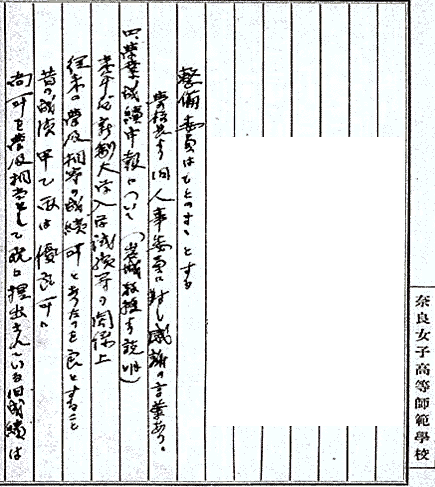 奈良女子高等師範學校
整備委員はもとのまゝとする
学校長より旧人事委員に対し感謝の言葉あり。
四、学業成績申報について(岩城教授より説明)
本年は新制大学入学試験等の関係上
従来の学及相当の成績可とあったのを良とすること
昔の成績 甲乙丙は優良可に
尚可を学及相当として既に提出されている旧成績は